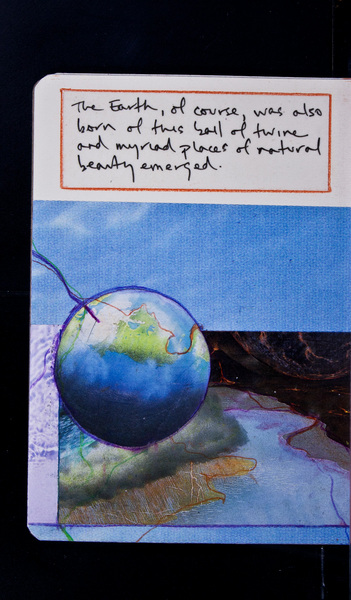 The Earth, of course, was also
born of this ball of twine
and myriad places of natural
beauty emerged.